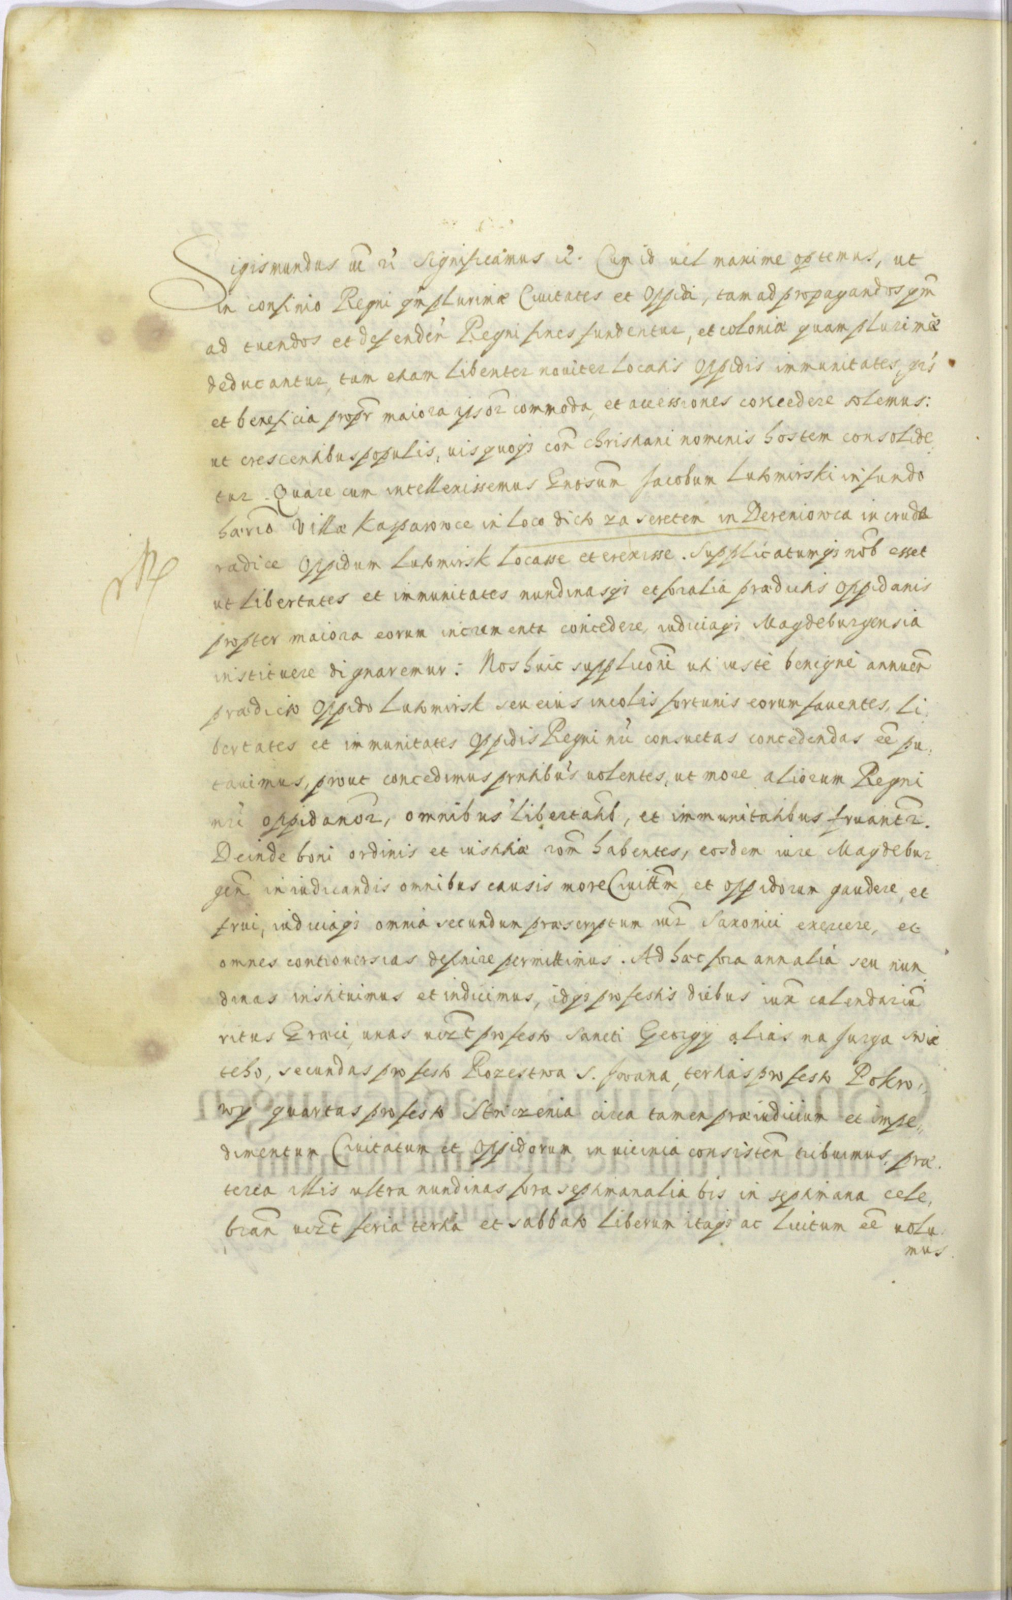 Sigismundus etc. rū significamus etc. Cum id vel maxime optemus, ut
in confinio Regni qmplurimæ Civitates et Oppida, tam ad propagandos qm
ad tuendos et defenden Regni fines fundentur, et coloniæ quamplurimæ
deducantur, tum etiam libenter noviter locatis Oppidis immunitates, grās
et beneficia propr maiora ipsor commoda, et accessiones concedere solemus:
ut crescentibus populis, vis quoqs con christiani nominis hostem consolide
tur. Quare cum intellexissemus Gnosum Jacobum Lutomirski in fundo
hærio Villæ Kasparowce in loco dicto za seretem in Dereniowca in cruda
radice Oppidum Lutomirsk locasse et erexisse. Supplicatumqs nob esset
ut libertates et immunitates nundinasqs et foralia prædictis Oppidanis
propter maiora eorum incrementa concedere, iudiciaqs Magdeburgensia
instituere dignaremur: Nos huic supplicōni uti iustæ benigne annuen
prædicto Oppido Lutomirsk seu eius incolis fortunis eorum faventes, li,
bertates et immunitates Oppidis Regni nri consuetas concedendas eē pu,
tavimus, prout concedimus pntibus volentes, ut more aliorum Regni
nri oppidanor, omnibus libertatib, et immunitatibus fruantr.
Deinde boni ordinis et iustitiæ rōm habentes, eosdem iure Magdebur
gen in iudicandis omnibus causis more Civittm et oppidorum gaudere, et
frui, iudiciaqs omnia secundum præscriptum iur Saxonici exercere, et
omnes controversias definire permittimus. Ad hæc fora annalia seu nun
dinas instituimus et indicimus, idqs pro festis diebus iuxa calendarium
ritus Græci, unas vizt pro festo Sancti Georgy alias na Jurga swie
teho, secundas pro festo Rozestwa S. Jwana, tertias pro festo Pokro,
wy quartas pro festo Strzenia citra tamen præiudicium et impe,
dimentum Civitatum et Oppidorum in vicinia consisten tribuimus, præ,
terea illis ultra nundinas fora septimanalia bis in septimana cele,
bran vizt feria tertia et sabbato liberum itaqs ac licitum eē volu
mus.